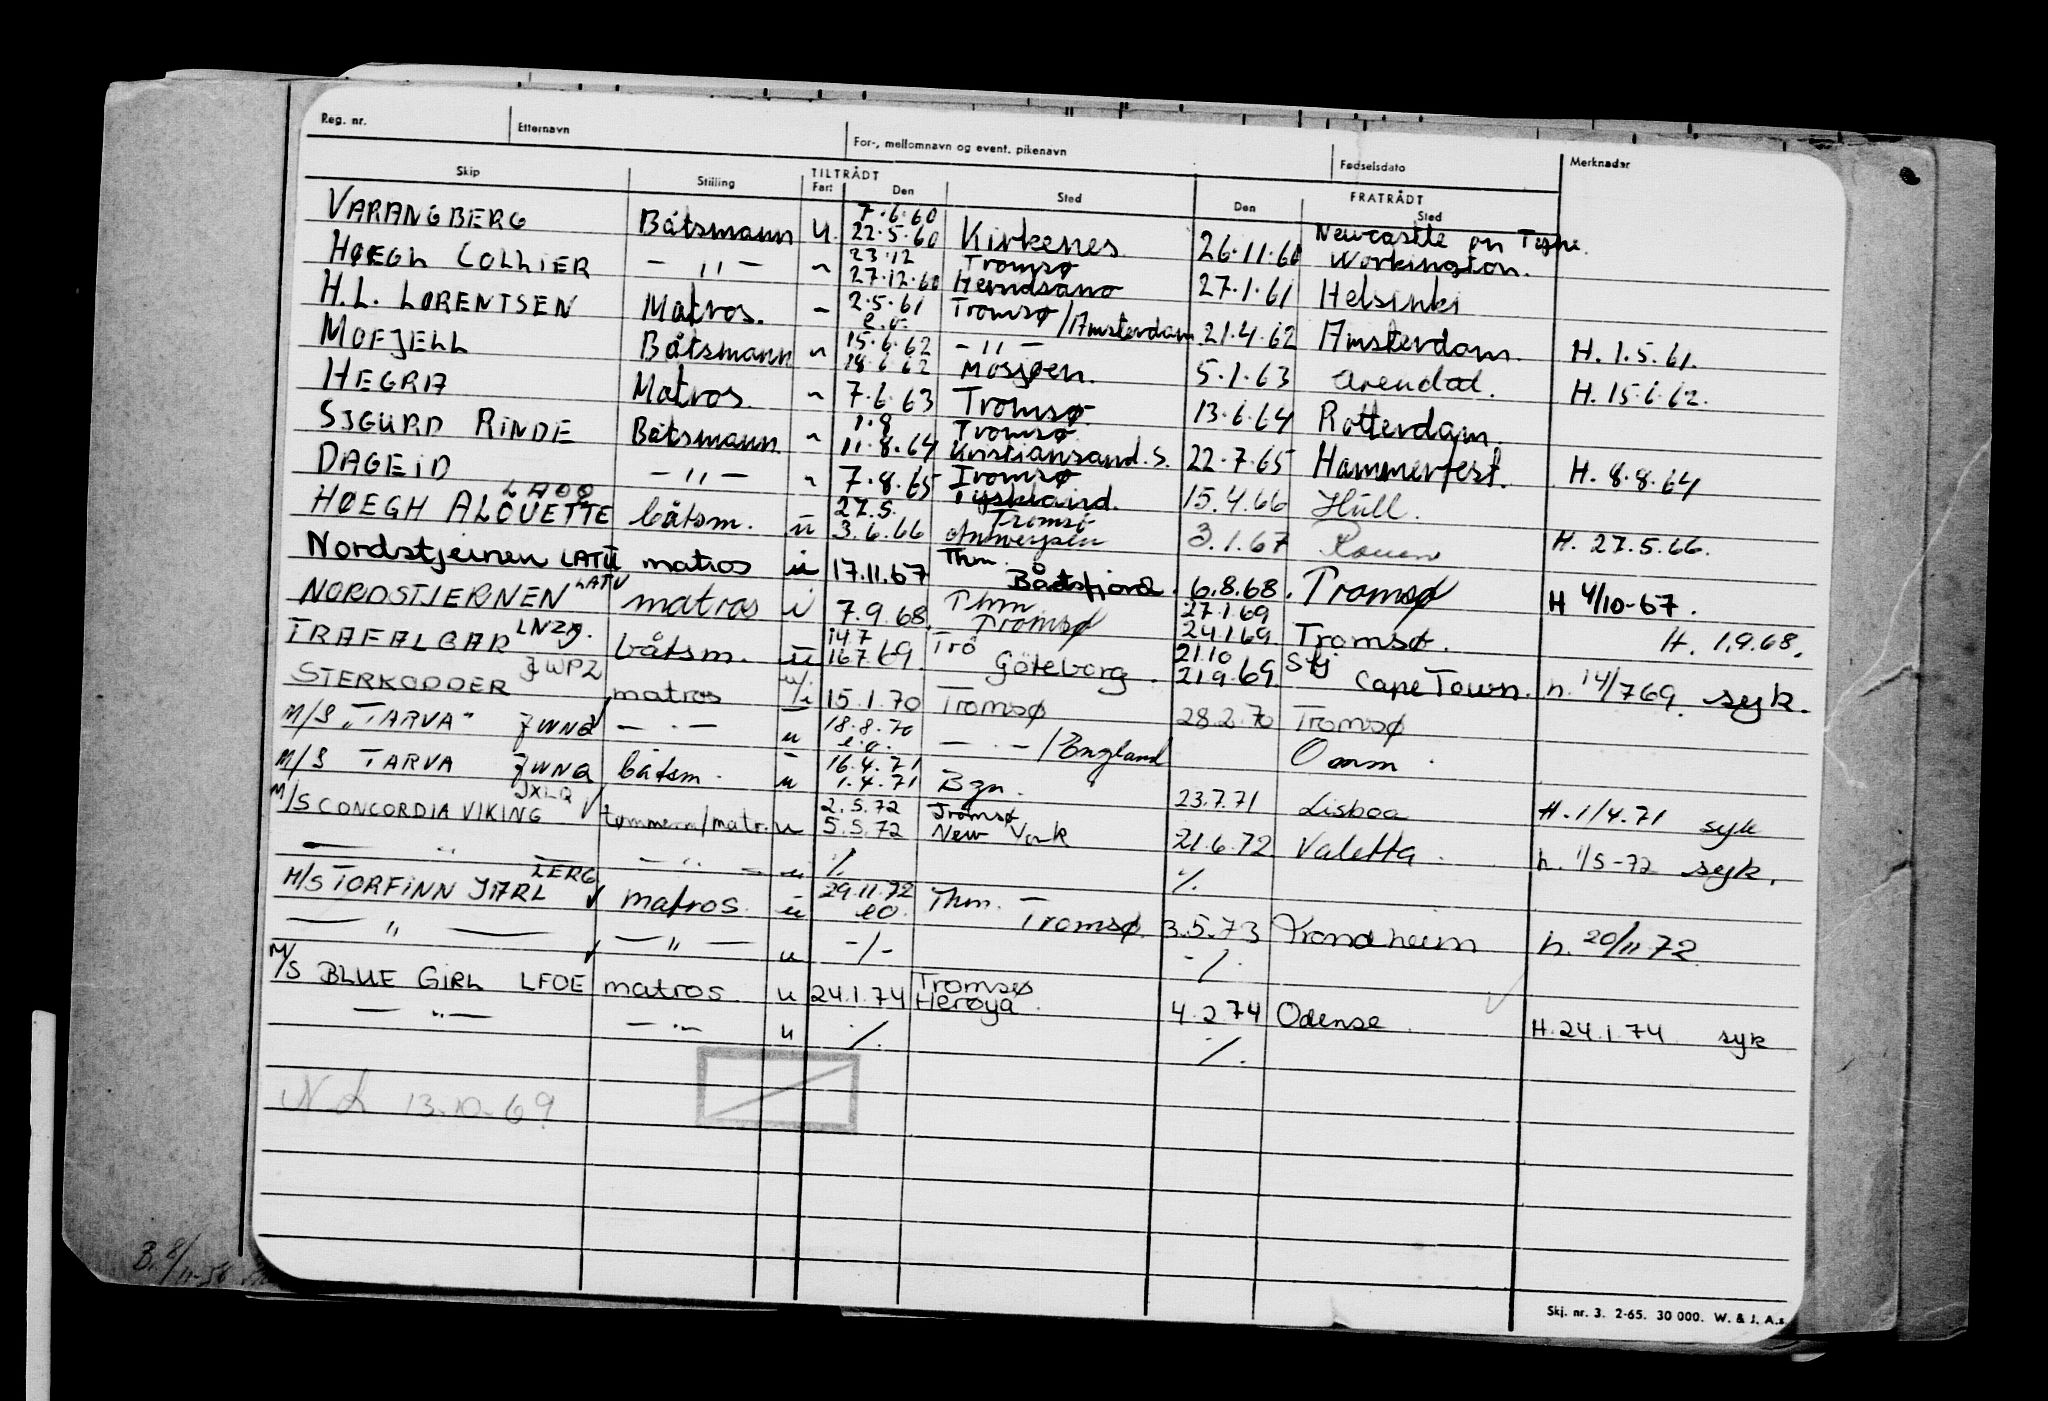 Reg. nr. Etternavn For-, mellomnavn og event. pikenavn Fødselsdato Merknader
Skip Stilling TILTRÅDT FRATRÅDT
Fart Den Sted Den Sted
VARANGBERG Båtsmann u. 7.6.60 22.5.60 Kirkenes 26.11.60 Newcastle on Tyne. Workington.
HØEGH COLLIER — " — 23.12 27.12.60 Tromsø 27.1.61 Helsinki
H.L. LORENTSEN Matros. 2.5.61 e.o. Tromsø / Amsterdam 21.4.62 Amsterdam. H. 1.5.61.
MOFJELL Båtsmann 15.6.62 18.6.62 — " — Mosjøen. 5.1.63 Arendal. H. 15.6.62.
HEGRA Matros 7.6.63 Tromsø 13.6.64 Rotterdam.
SIGURD RINDE Båtsmann. 1.8 11.8.64 Tromsø Kristiansand.S. 22.7.65 Hammerfest. H. 8.8.64
DAGEID — " — 7.8.65 Tromsø Tyskland. 15.4.66 Hull.
HØEGH ALOUETTE båtsm. u 27.5. 3.6.66 Tromsø Antwerpen 3.1.67 Rouen H. 27.5.66.
Nordstjernen LATU matros i 17.11.67 Thm. Båtsfjord. 6.8.68. Tromsø H 4/10-67.
NORDSTJERNEN LATU matros i 7.9.68. Thm Tromsø 27.1.69 24.1.69 Tromsø. H. 1.9.68.
TRAFALGAR båtsm. u 14.7 16.7.69. Trø Göteborg. 21.10 21.9.69. Stj Cape Town. h. 14/7 69. syk.
STERKODDER JWPZ matros u/i 15.1.70 Tromsø 28.2.70 Tromsø
M/S "TARVA" JWNQ — " — u 18.8.70 e.o. — " — / England Omm.
M/S TARVA JWNQ båtsm. u 16.4.71 1.4.71 Bgn. 23.7.71 Lisboa H. 1/4.71 syk
M/S CONCORDIA VIKING JXLQ tømmerm/matr. u 2.5.72 5.5.72 Tromsø New York 21.6.72 Valetta. h. 1/5-72 syk.
— " — — " — u ·/. ·/.
M/S TORFINN JARL LERG matros. u 29.11.72 eo. Thm. Tromsø. 3.5.73 Trondheim h. 20/11 72
— " — — " — u -/- -/.
M/S BLUE GIRL LFOE matros. u 24.1.74 Tromsø Herøya. 4.2.74 Odense. H. 24.1.74 syk
— " — — " — u ·/. ·/.
13.10.69
B. 8/11-58
Skj. nr. 3. 2-65. 30 000. W. & J. A.s